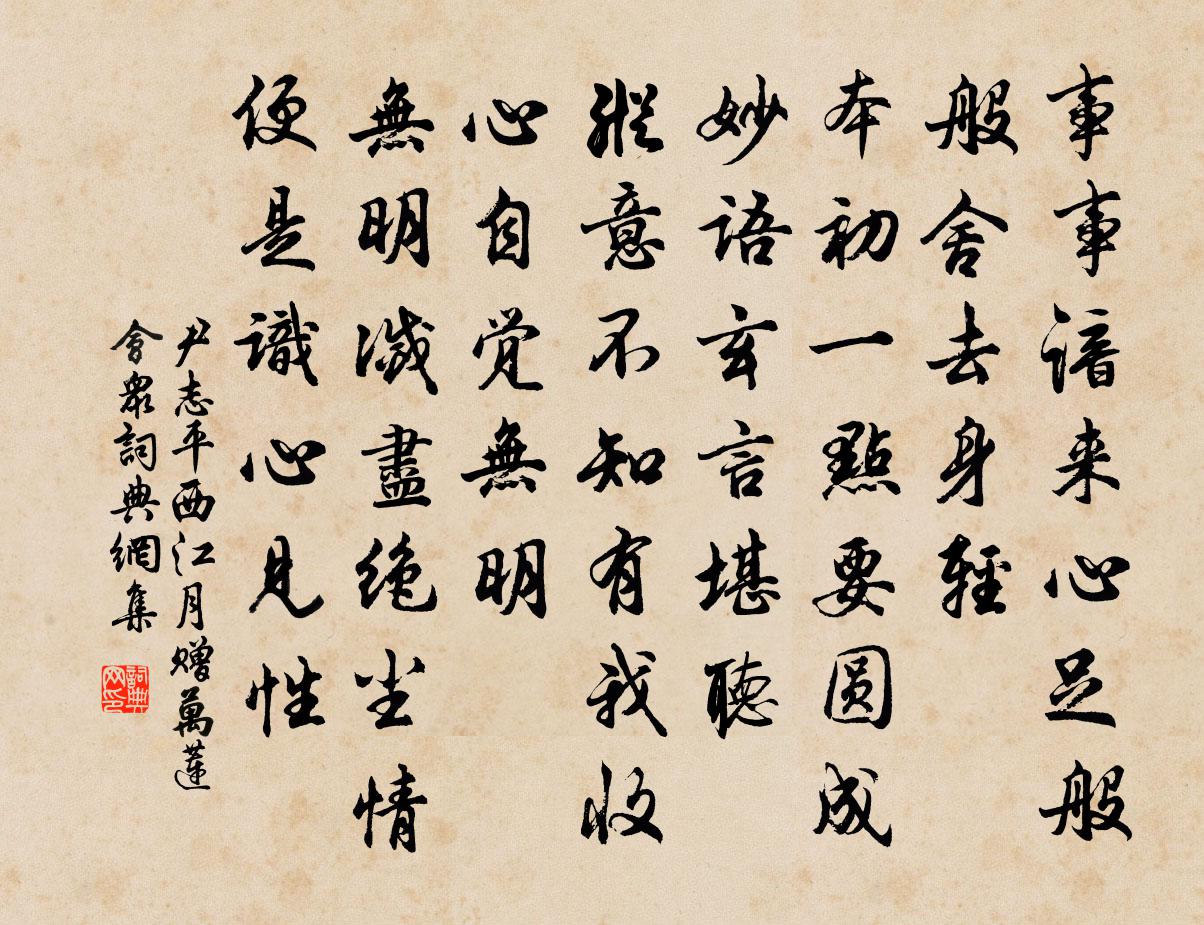 事事諳来心足般
般舍去身輕
本初一點要圆成
妙語玄言堪聽
縱意不知有我收
心自觉無明
無明滅盡绝尘情
便是識心見性
尹志平西江月贈萬蓮
會衆詞典網集
詞典网印